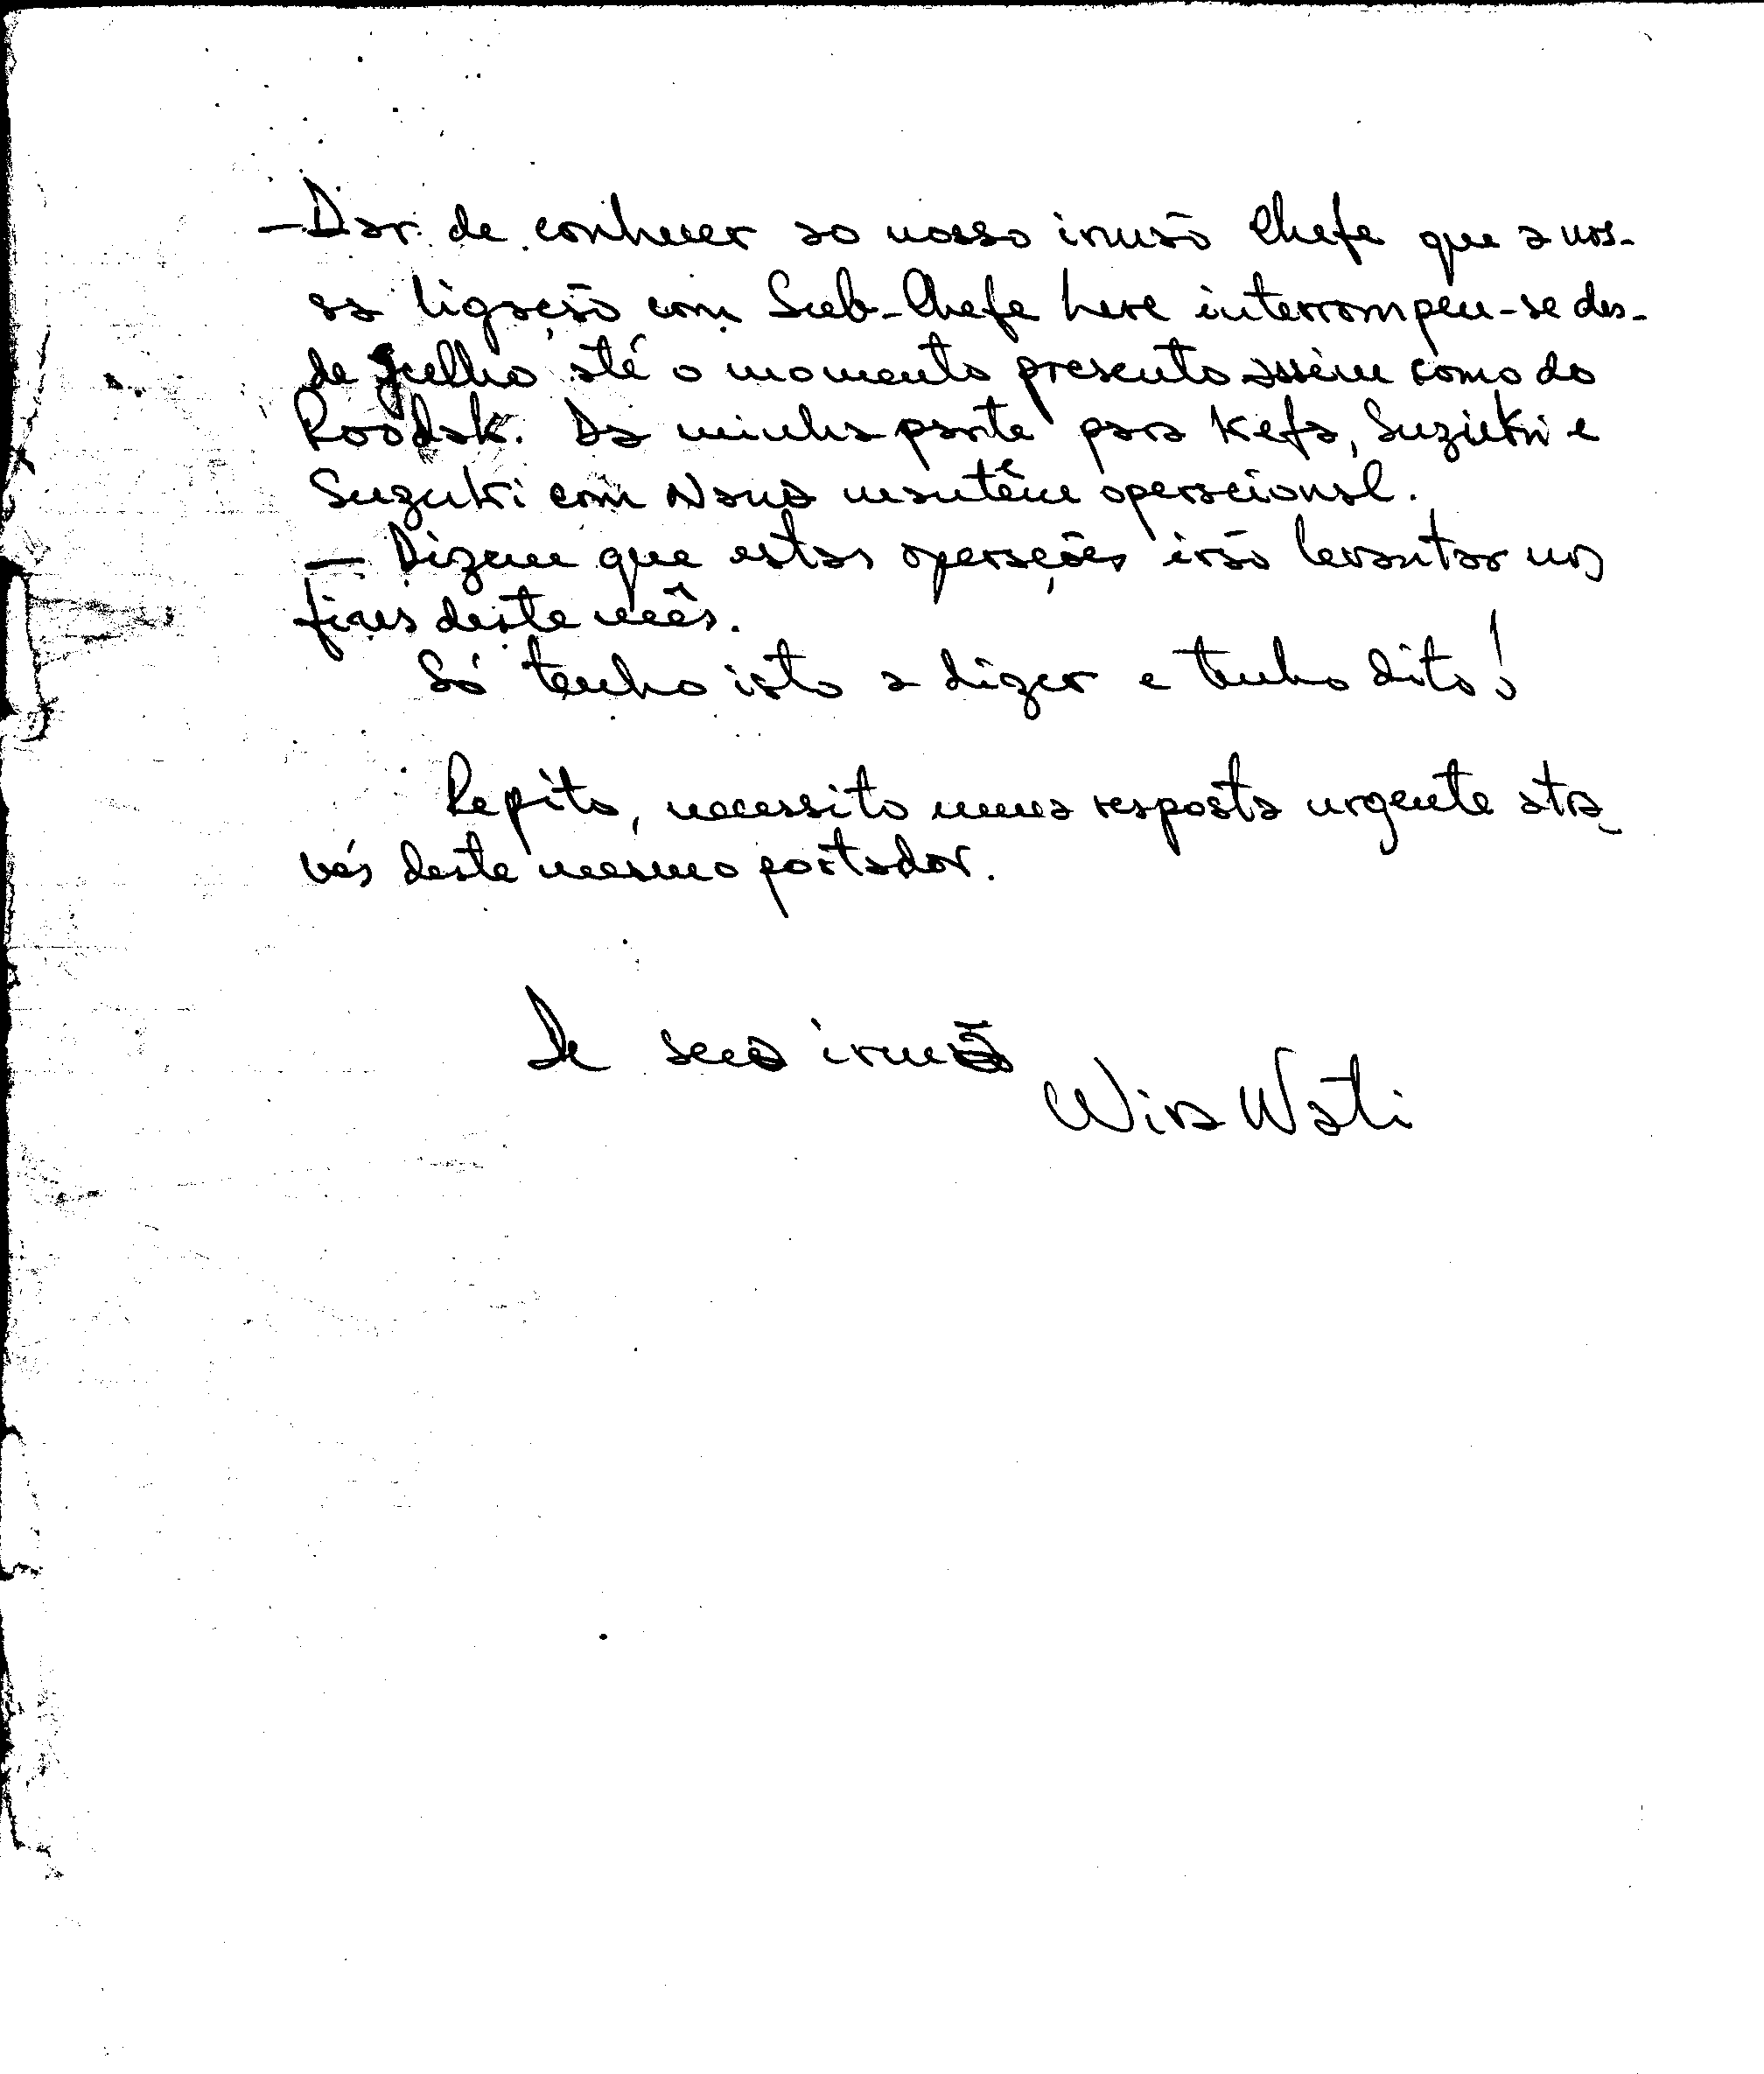 - Dar de conhecer ao nosso irmão Chefe que a nos-
sa ligação com Sub-Chefe here interrompeu-se des-
de Julho até o momento presento assim como do
Roodak. Da minha parte para Kefa, Suzuki e
Suzuki com Nana mantêm operacional.
- Dizem que estas operações irão levantar nos
fins deste mês.
Só tenho isto a dizer e tenho dito!
Repito, necessito uma resposta urgente atra-
vés deste mesmo portador.
De seu irmão
Wira Wati